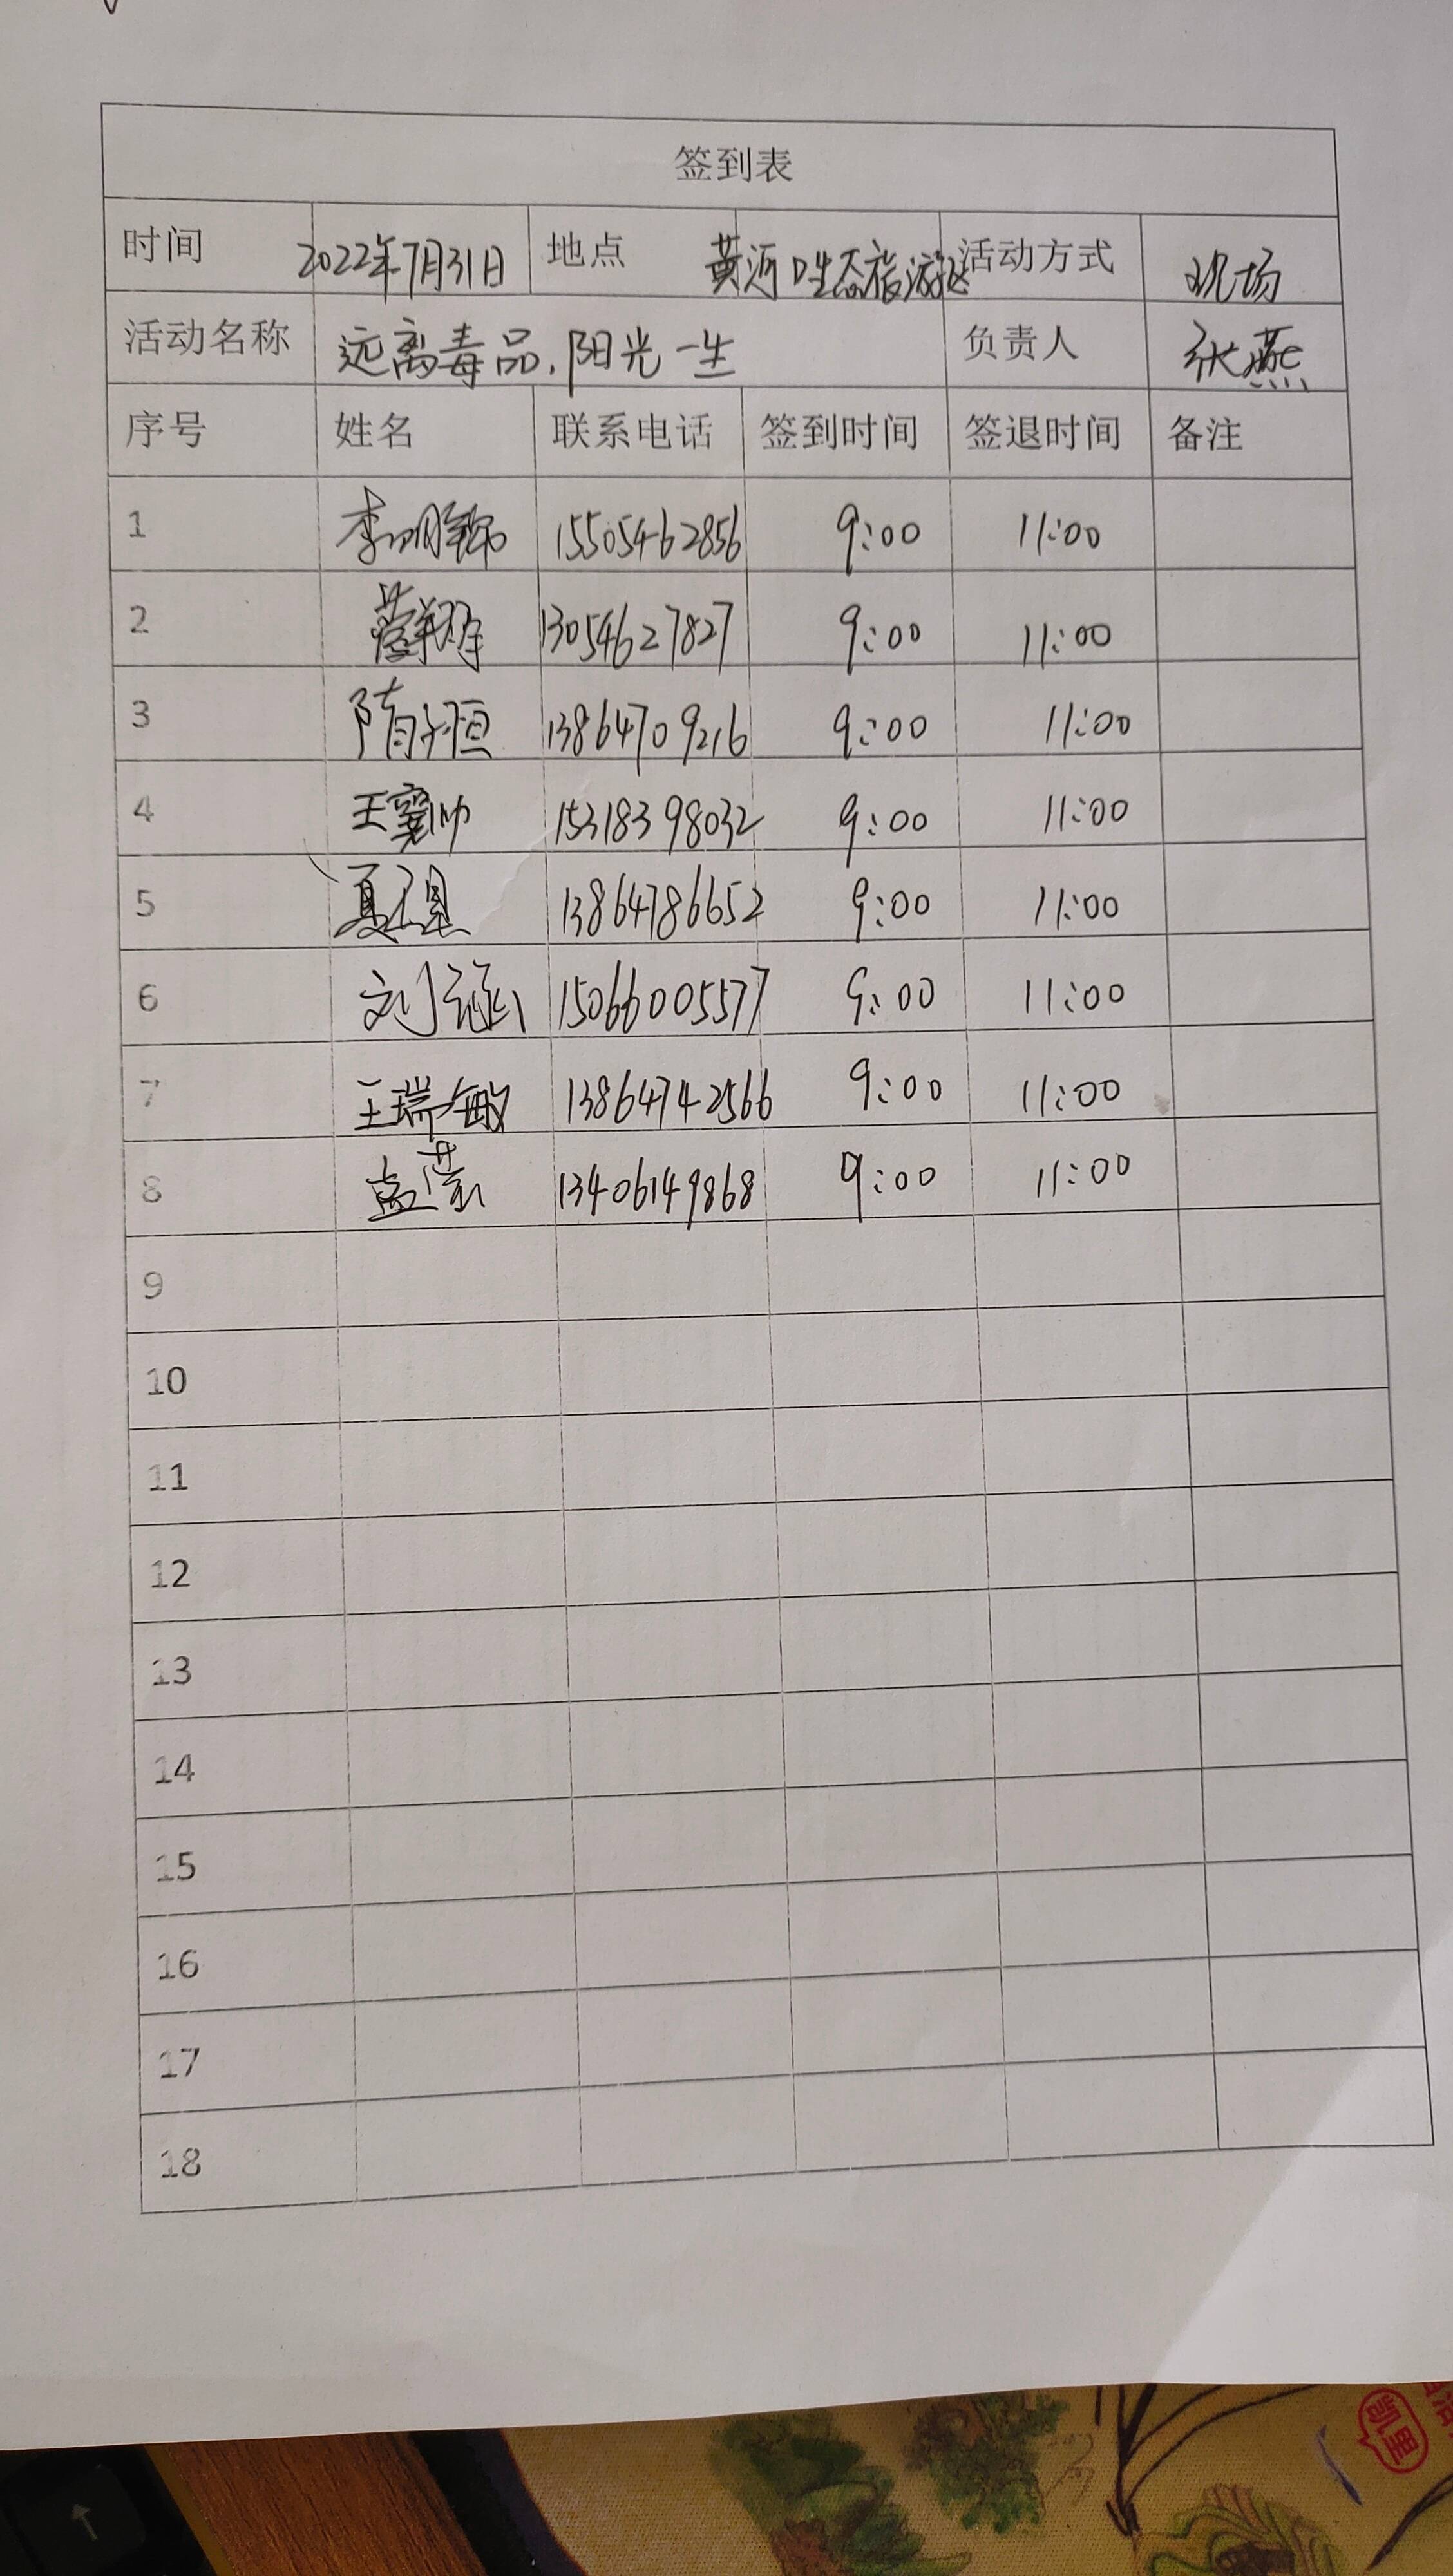 签到表
时间 2022年7月31日 地点 黄河口生态旅游区 活动方式 现场
活动名称 远离毒品,阳光一生 负责人 张燕
序号 姓名 联系电话 签到时间 签退时间 备注
1 李明锦 15505462856 9:00 11:00
2 13054627827 9:00 11:00
3 隋子恒 13864709216 9:00 11:00
4 王 帅 15318398032 9:00 11:00
5 夏 13864786652 9:00 11:00
6 刘涵 15066005577 9:00 11:00
7 王瑞敏 13864742566 9:00 11:00
8 孟莹 13406149868 9:00 11:00
9
10
11
12
13
14
15
16
17
18
凯里